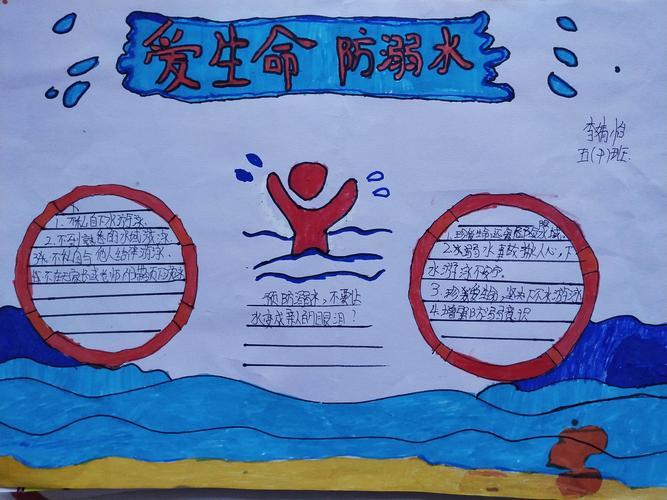 爱生命 防溺水
李精怡
五(十)班
1、不私自下水游泳
2、不到熟悉的水域游泳
3、不私自与他人结伴游泳
4、不在无家长或老师带领下游泳
预防溺水,不要让
水变成亲人的眼泪?
1、珍爱生命远离危险水域
2、水溺水事故揪人心,下
水游泳不
3、珍爱生命,坚决不下水游泳
4、增强防溺意识